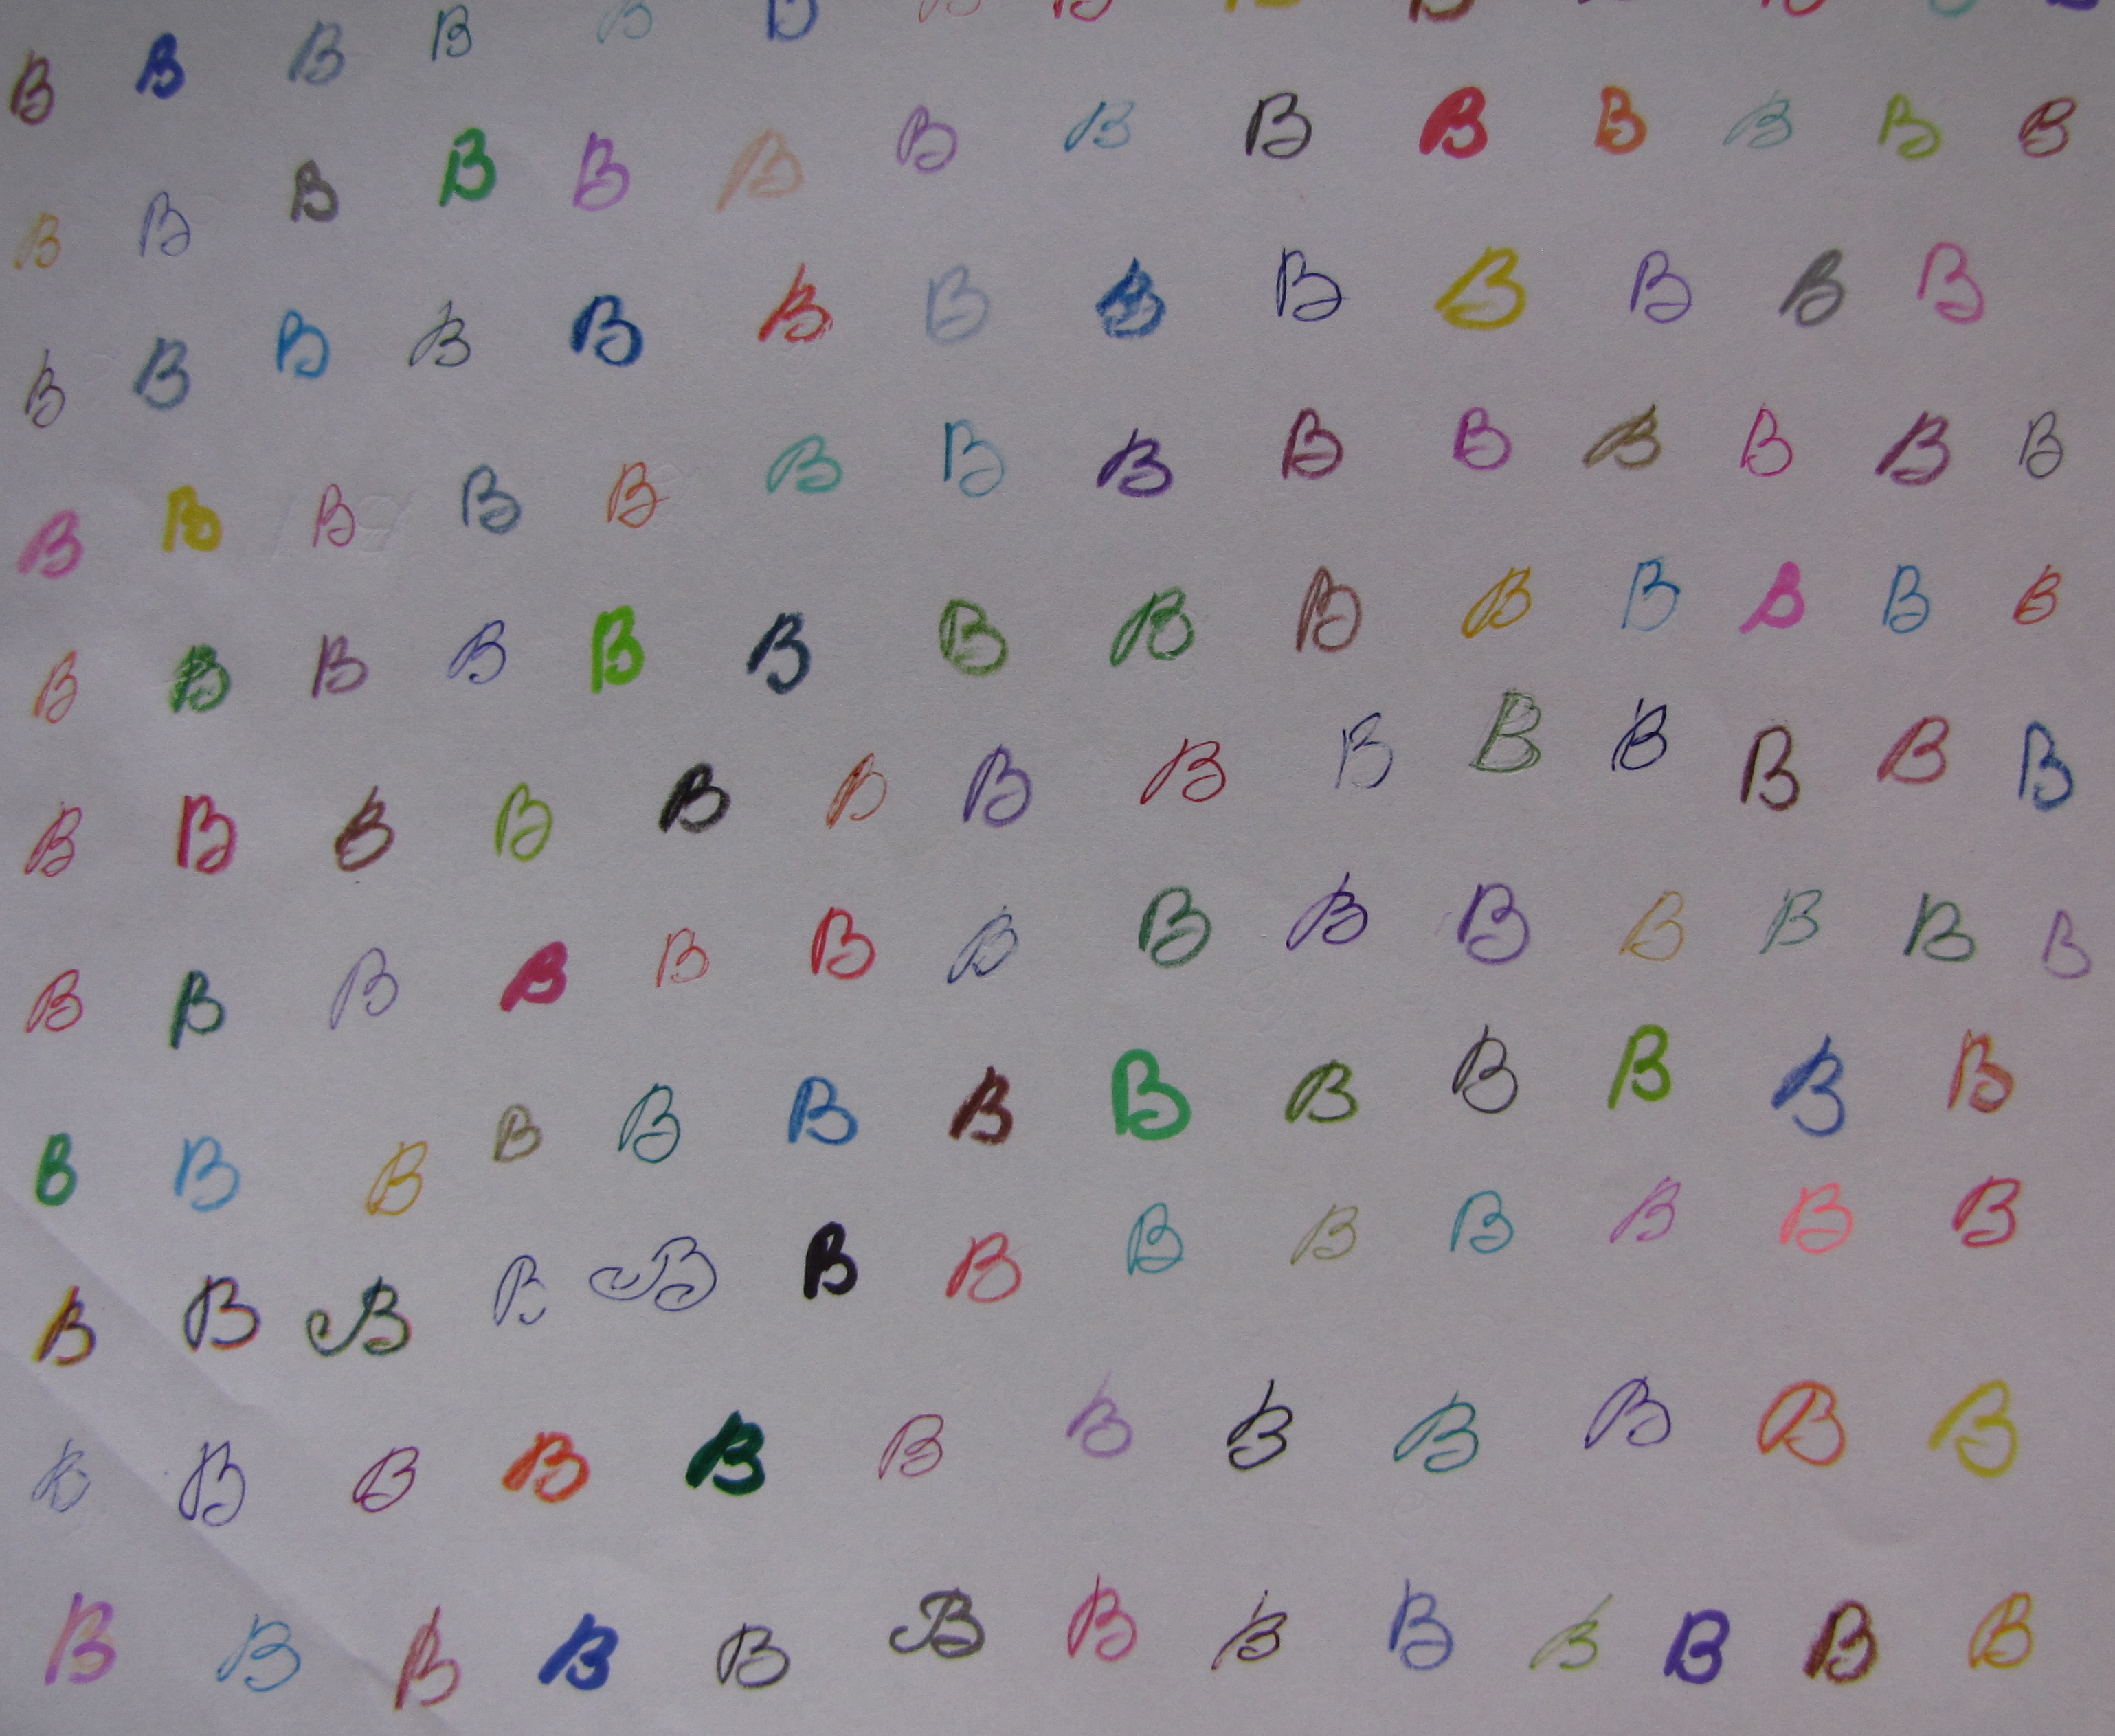 B B B B B B
B B B B B B B B B B B B B B
B B B B B B B B B B B B B
B B B B B B B B B B B B B B
B B B B B B B B B B B B B B
B B B B B B B B B B B B B B
B B B B B B B B B B B B B B
B B B B B B B B B B B B B
B B B B B B B B B B B B B
B B B B B B B B B B B B
B B B B B B B B B B B B B